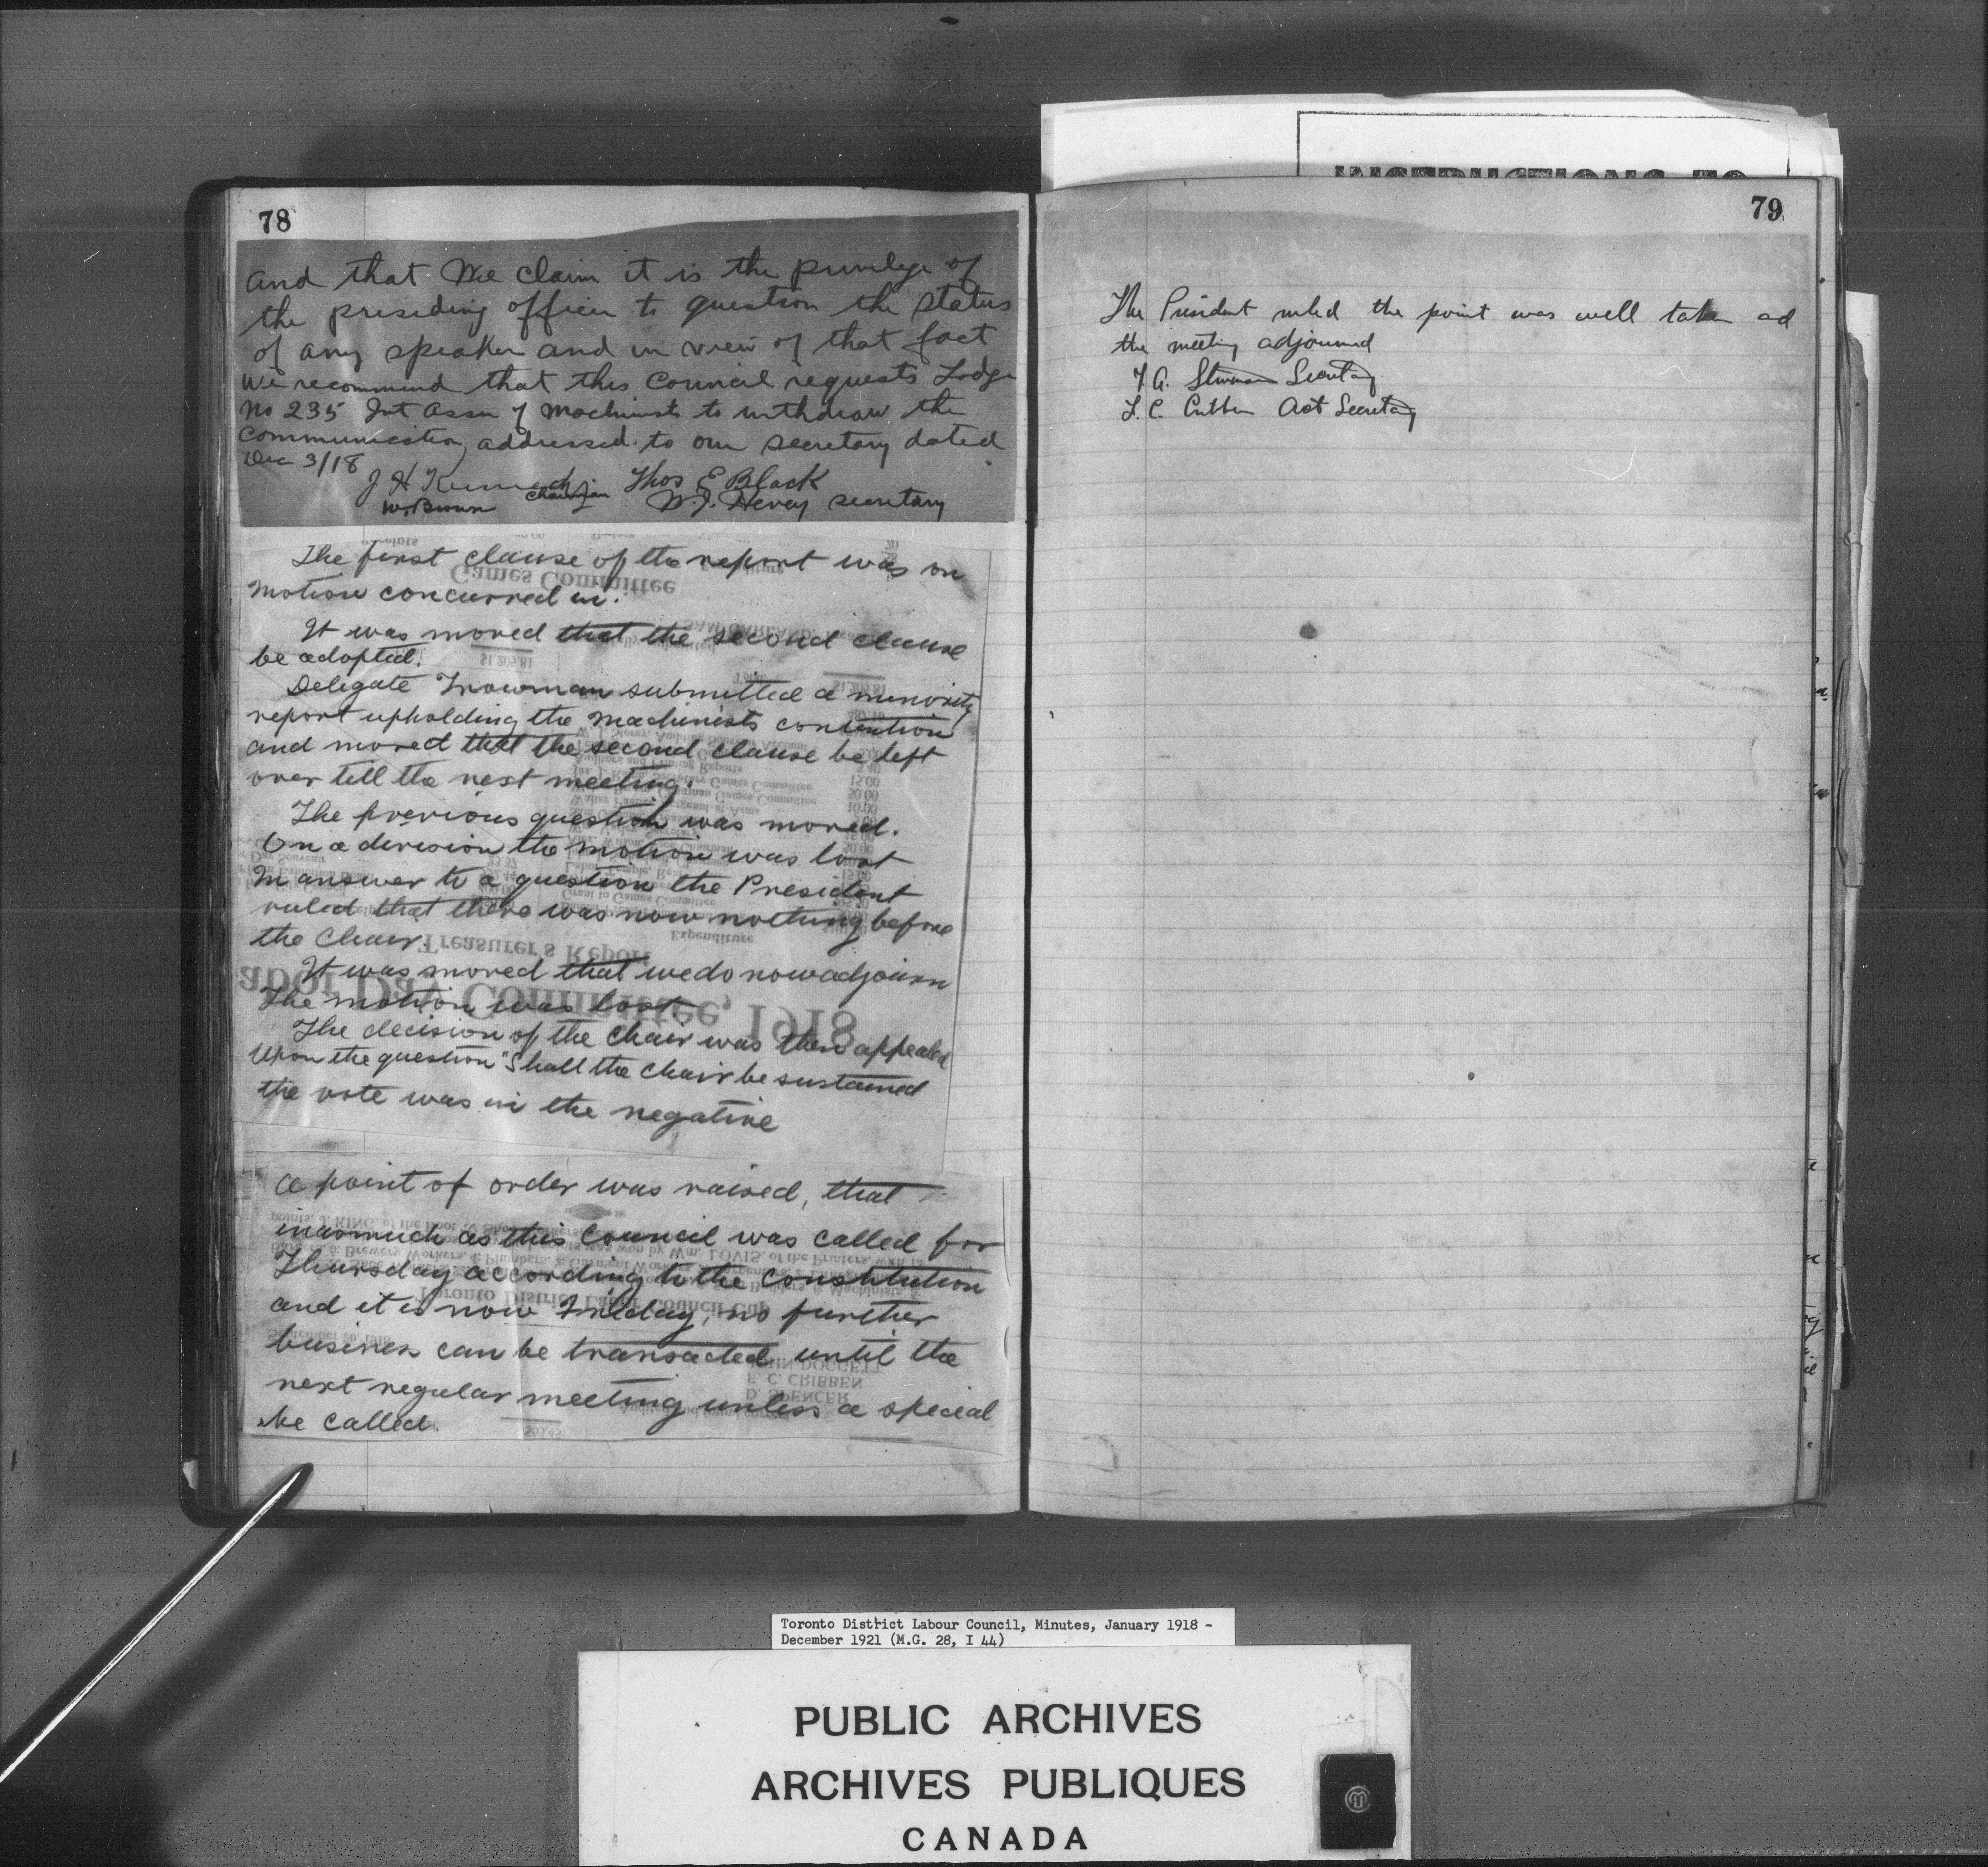 78
and that We claim it is the privilege of
the presiding officer to question the status
of any speaker and in view of that fact
we recommend that this Council requests Lodge
No 235 Int Assn of Machinists to withdraw the
communication addressed to our secretary dated
Dec 3/18
J H Kennedy Chairman Thos E Black
W. Brown W. J. Hevey secretary
The first clause of the report was on
motion concurred in.
It was moved that the second clause
be adopted.
Delegate submitted a minority
report upholding the machinists contention
and moved that the second clause be left
over till the next meeting.
The previous question was moved.
On a division the motion was lost
In answer to a question the President
ruled that there was now nothing before
the chair.
It was moved that we do now adjourn
The motion was lost.
The decision of the Chair was then appealed
Upon the question "Shall the chair be sustained
the vote was in the negative
A point of order was raised, that
inasmuch as this Council was called for
Thursday according to the constitution
and it is now Friday, no further
business can be transacted until the
next regular meeting unless a special
be called.
Games Committee
Treasurer's Report
Expenditure
abor Day Committee, 1918
Toronto District Labor Council Cup
F. C. CRIBBEN
D. SPENCER
INSTRUCTIONS TO
79
The President ruled the point was well taken ad
the meeting adjourned
Secretary
Act Secretary
Toronto District Labour Council, Minutes, January 1918 -
December 1921 (M.G. 28, I 44)
PUBLIC ARCHIVES
ARCHIVES PUBLIQUES
CANADA